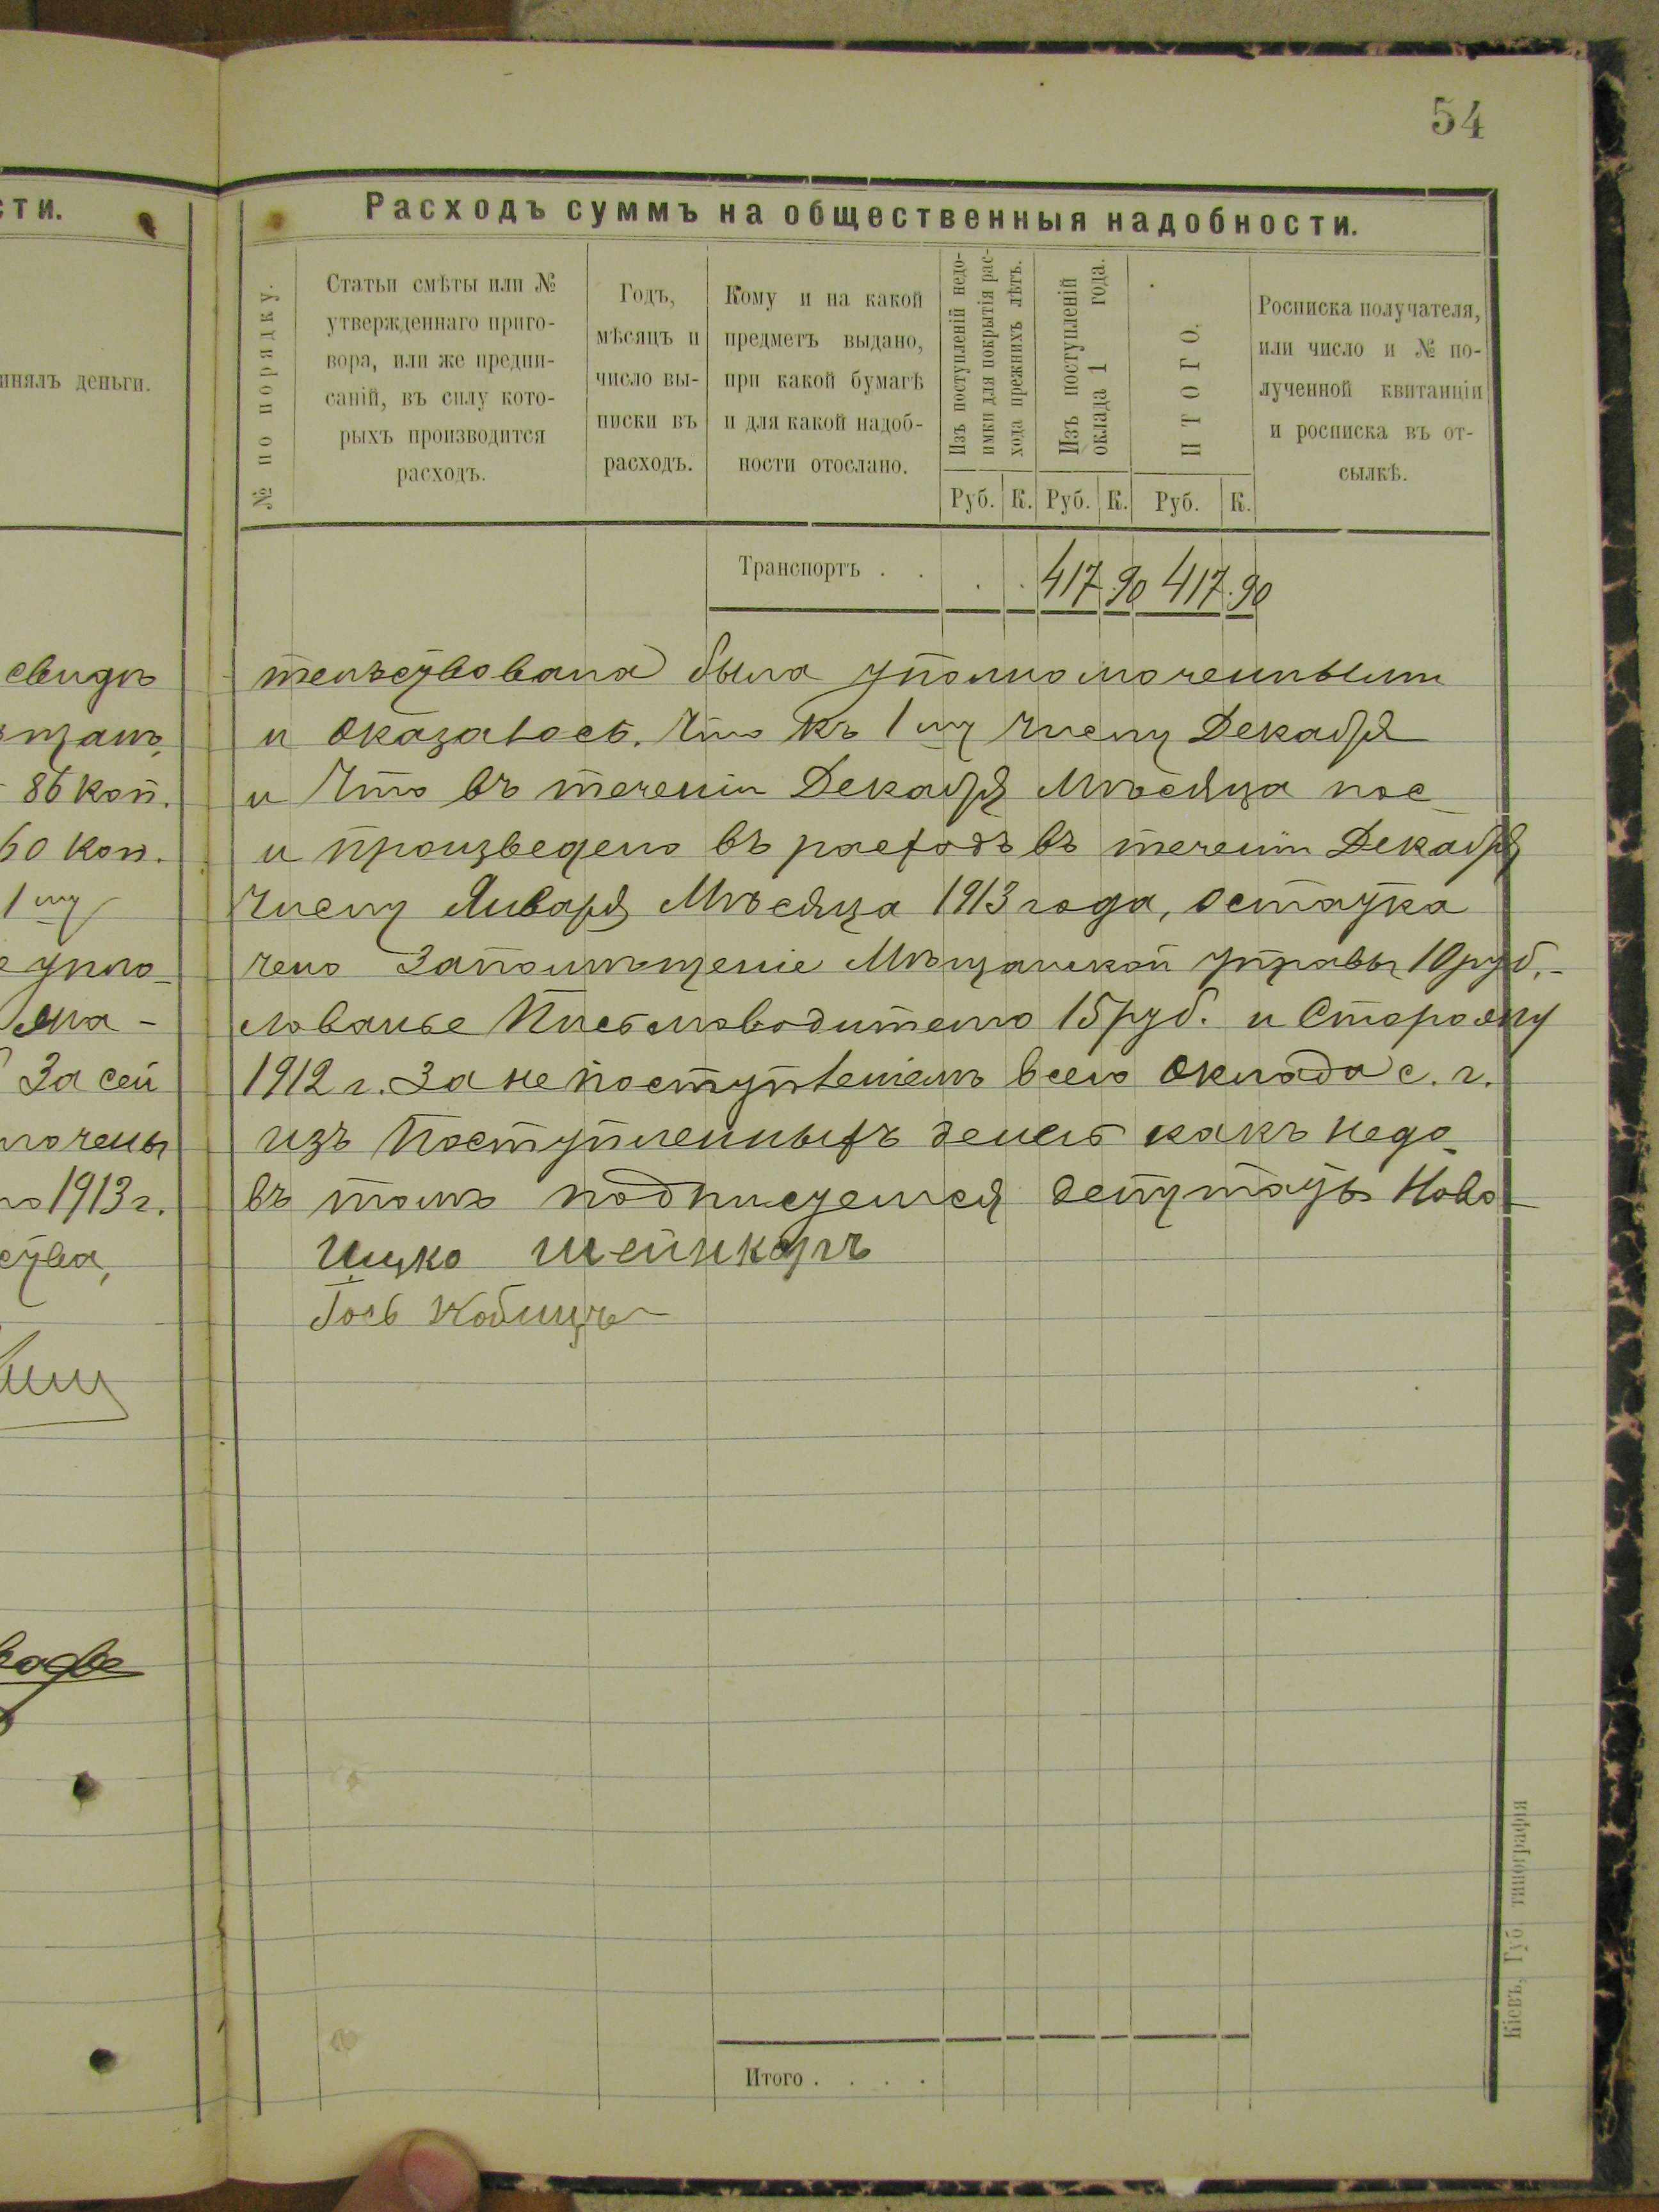 54
сти.
Расходъ суммъ на общественныя надобности.
инялъ деньги.
№ по порядку.
Статьи смѣты или №
утвержденнаго приго-
вора, или же предпи-
саній, въ силу кото-
рыхъ производится
расходъ.
Годъ,
мѣсяцъ и
число вы-
писки въ
расходъ.
Кому и на какой
предметъ выдано,
при какой бумагѣ
и для какой надоб-
ности отослано.
Изъ поступленій недо-
имки для покрытія рас-
хода прежнихъ лѣтъ.
Изъ поступленій
оклада 1 года.
ИТОГО.
Росписка получателя,
или число и № по-
лученной квитанціи
и росписка въ от-
сылкѣ.
Руб. К. Руб. К. Руб. К.
Транспортъ . . . . 417.90 417.90
свидѣ
тельствована была уполномоченными
и оказалось. Что къ 1му числу Декабря
86 коп.
и Что въ теченіи Декабря Мѣсяца пос-
60 коп.
и произведено въ расходъ въ теченіи Декабря
1му
числу Января Мѣсяца 1913 года, остатка
чено Запомѣщеніе Мѣщанской управы 10 руб.-
лованье Письмоводителю 15 руб. и Сторожу
За сей
1912 г. За не поступленіемъ всего оклада с. г.
мочены
изъ Поступленныхъ денегъ какъ недо-
1913 г.
въ томъ подписуемся депутатъ Ново-
ства,
Ицко Шейнкаръ
Кіевъ, Губ. типографія
Итого . . . .